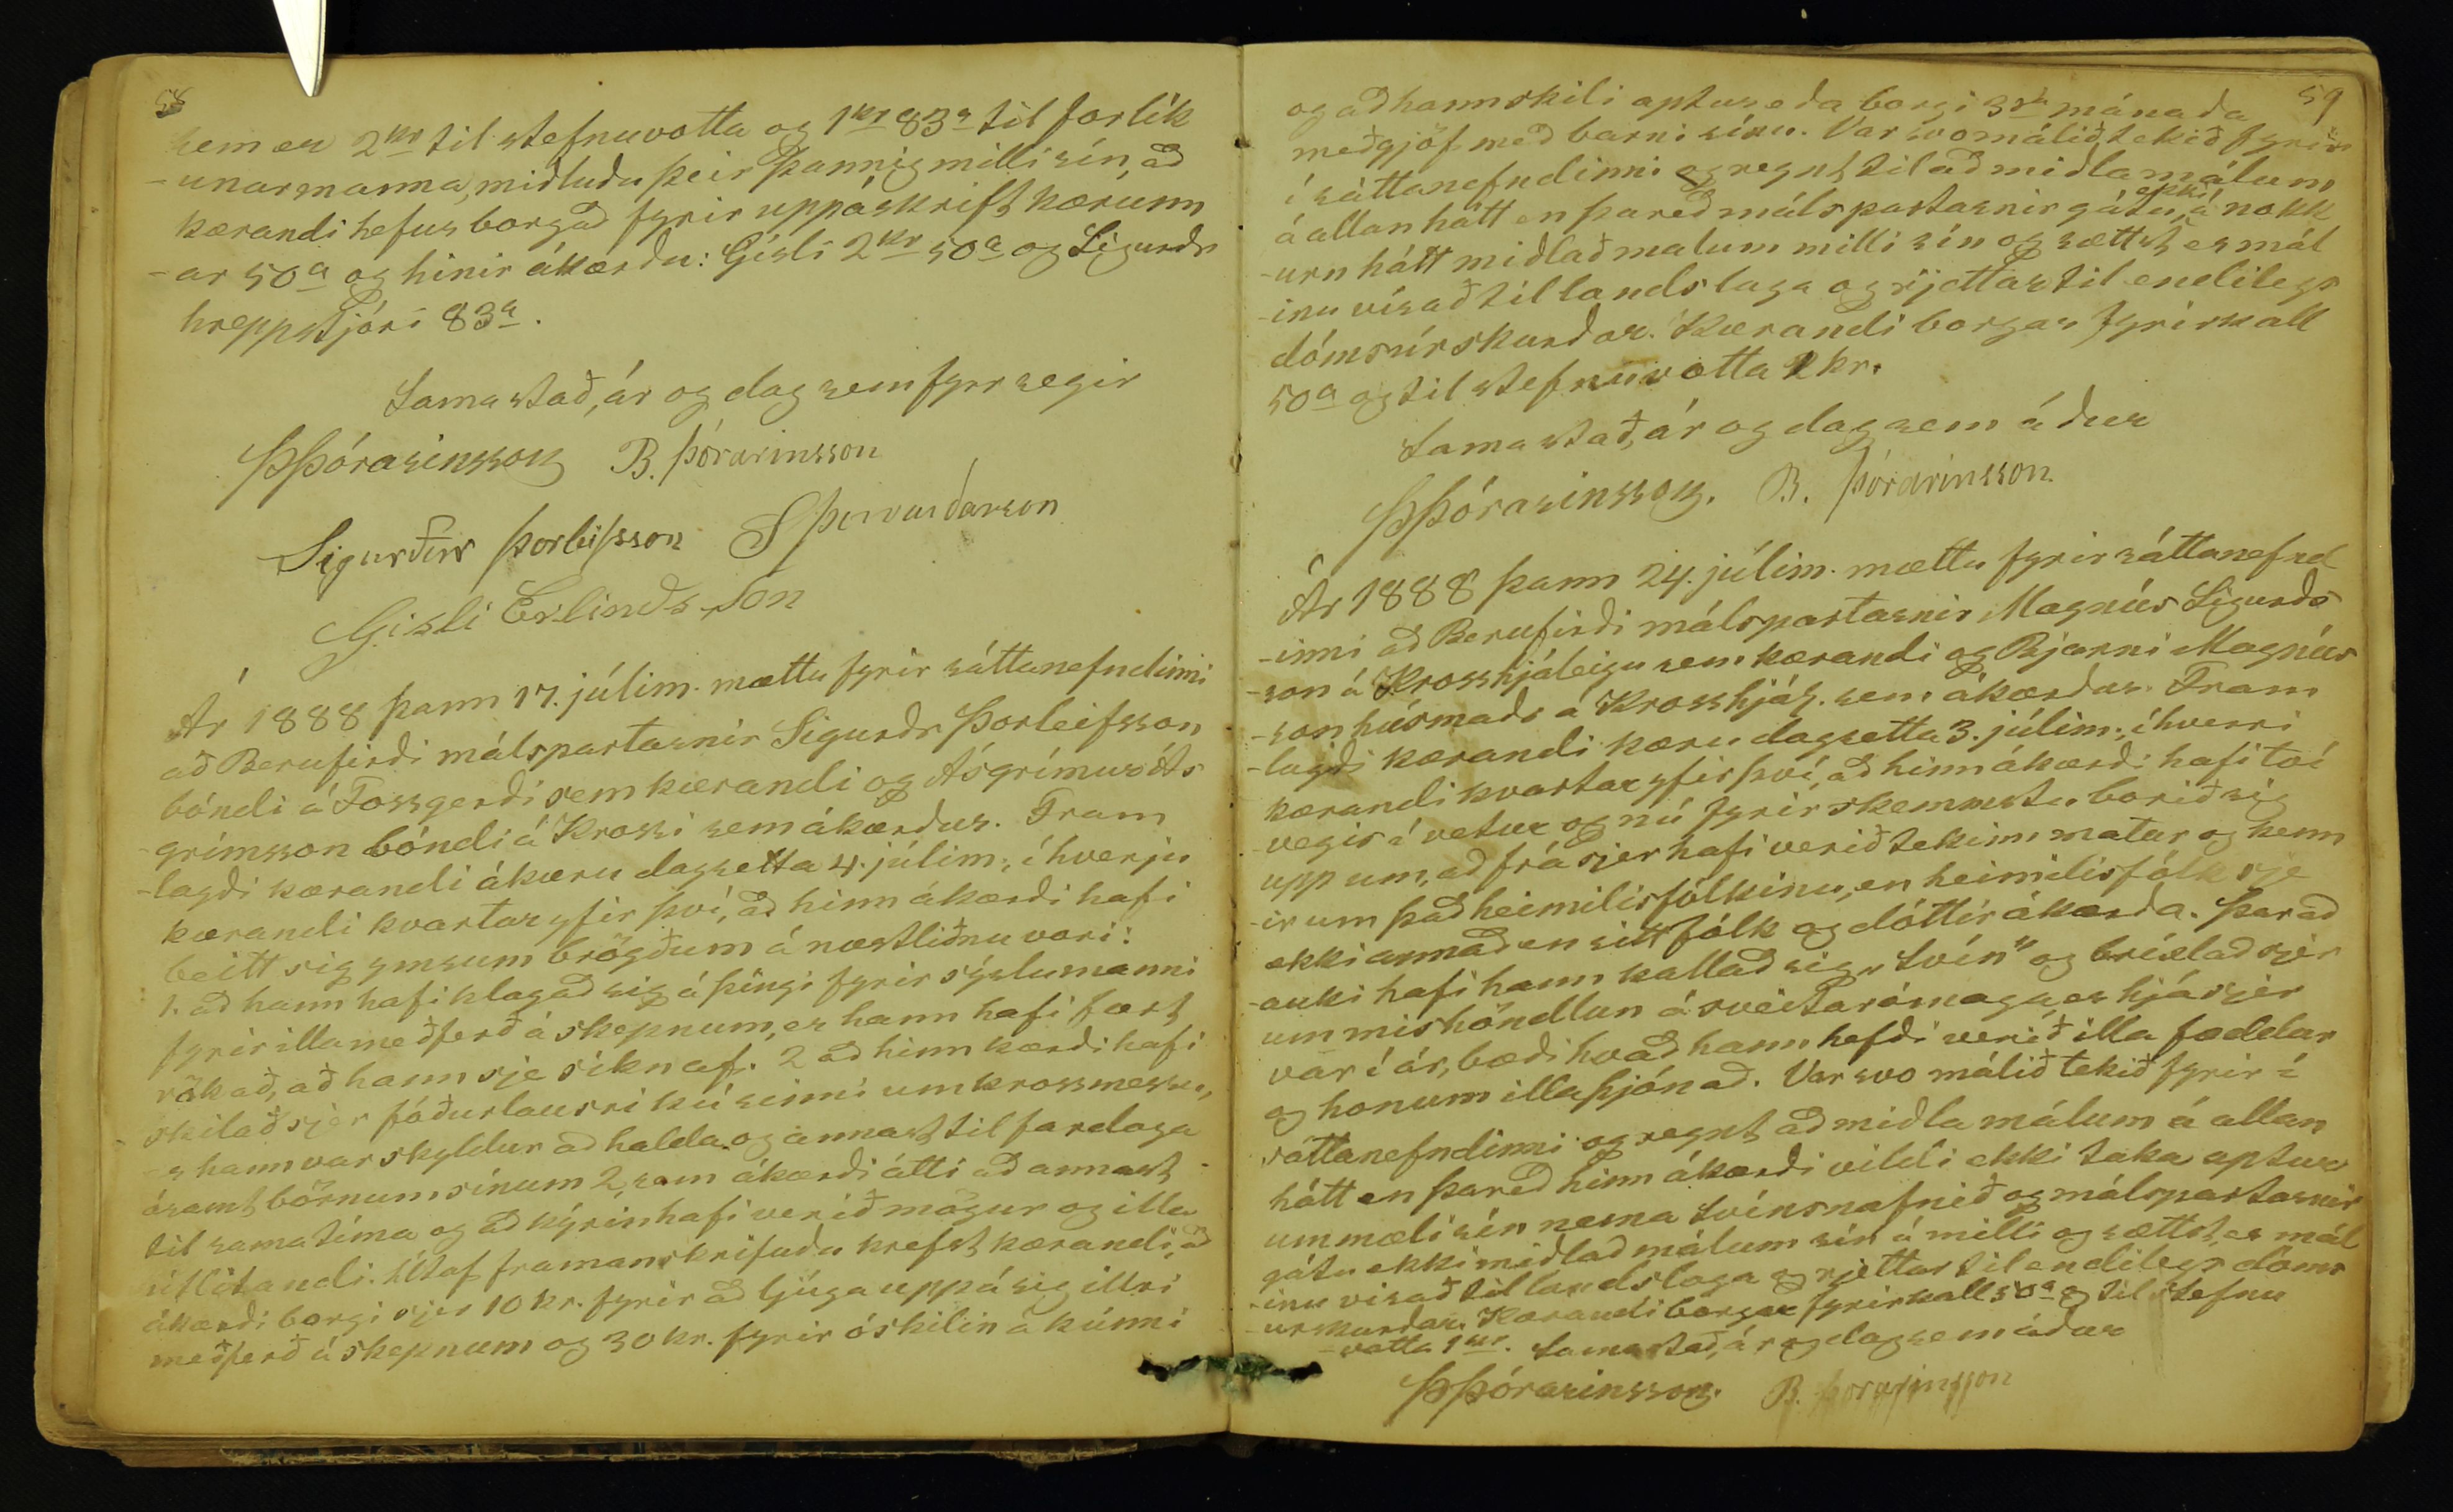 58
sem er 2 kr til stefnuvotta og 1 kr 83 a til forlík
-unarmanna, miðluðu þeir þannig milli sín, að
kærandi hefur borgað fyrir uppáskrift kærunn
-ar 50 a og hinir ákærðu: Gísli 2 kr 50 a og Sigurðr
hreppstjóri 83 a.
Sama stað, ár og dag sem fyrr segir
ÞÞórarinsson B. Þórarinsson
Sigurður Þorleifsson S Þorvarðarson
Gísli Erlindsson
Ár 1888 þann 17. júlím. mættu fyrir sáttanefndinni
að Berufirði málspartarnir Sigurðr Þorleifsson
bóndi á Fossgerði sem kærandi og Ásgrímur Ás
-grímsson bóndi á Krossi sem ákærður. Fram
-lagði kærandi ákæru dagsetta 4. júlím., í hverju
kærandi kvartar yfir því, að hinn ákærði hafi
beitt sig ymsum brögðum á næstliðnu vori:
1. að hann hafi klagað sig á þingi fyrir sýslumanni
fyrir illa meðferð á skepnum, er hann hafi fært
rök að, að hann sje sikn af. 2 að hinn kærði hafi
skilað sjer fóðurlausri kú sinni um krossmessu,
er hann var skyldur að halda og annast til fardaga
ásamt börnum sínum 2, sem ákærði átti að annast
til sama tíma og að kýrin hafi verið mögur og illa
útlítandi. Útaf framanskrifuðu krefst kærandi, að
ákærði borgi sjer 10 kr. fyrir að ljúga uppá sig illri
meðferð á skepnum og 30 kr. fyrir óskilin á kúnni
59
og að hann skili aptur eða borgi 3ja mánaða
meðgjöf með barni sínu. Var svo málið tekið fyrir
í sáttanefndinni og reynt til að miðla málum
á allan hátt en þareð málspartarnir gátu ekki á nokk
-urn hátt miðlað malum milli sín og sættst, er mál
-inu vísað til landslaga og rjettar til endilegs
dómsúrskurðar. Kærandi borgar fyrirkall
50 a og til stefnuvotta 2 kr.
Sama stað, ár og dag sem áður
ÞÞórarinsson. B. Þórarinsson.
Ár 1888 þann 24. júlím. mættu fyrir sáttanefnd
-inni að Berufirði málspartarnir Magnús Sigurðs
-son á Krosshjáleigu sem kærandi og Bjarni Magnús
-son húsmaðr á Krosshjál. sem ákærður. Fram
-lagði kærandi kæru dagsetta 3. júlím., í hverri
kærandi kvartar yfir því, að hinn ákærði hafi tví
-vegis í vetur og nú fyrir skemmstu borið sig
upp um, að frá sjer hafi verið tekinn matur og kenn
-ir um það heimilisfólkinu, en heimilisfólk sje
ekki annað en sitt fólk og dóttir ákærða. Þar að
-auki hafi hann kallað sig „svín" og bríxlað sjer
um mishöndlun á sveitarómaga er hjá sjer
var í ár, bæði hvað hann hefði verið illa fæddur
og honum illa þjónað. Var svo málið tekið fyrir í
sáttanefndinni og reynt að miðla málum á allan
hátt en þareð hinn ákærði vildi ekki taka aptur
ummæli sín nema svínsnafnið og málspartarnir
gátu ekki miðlað málum sín á milli og sættst, er mál
-inu vísað til landslaga og rjettar til endilegs dóms
-urskurðar. Kærandi borgar fyrirkall 50 a og til stefnu
-votta 1 kr. Sama stað, ár og dag sem áður
ÞÞórarinsson. B. Þorarinsson